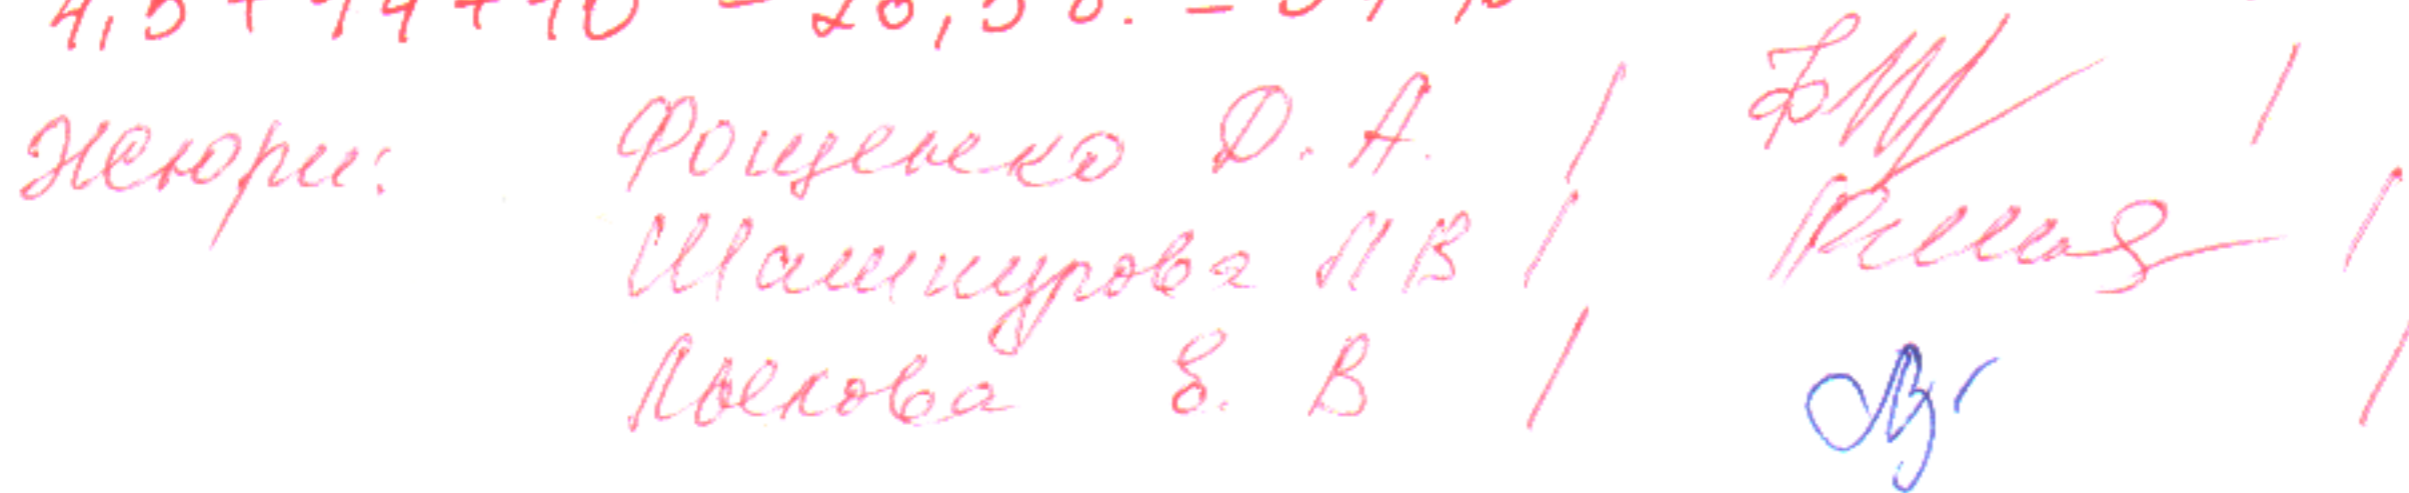 4,5+14+10 = 28,5 б. –
Жюри: Фощенко О. А. / /
Шашкурова Л В / /
Лыкова Е. В / /